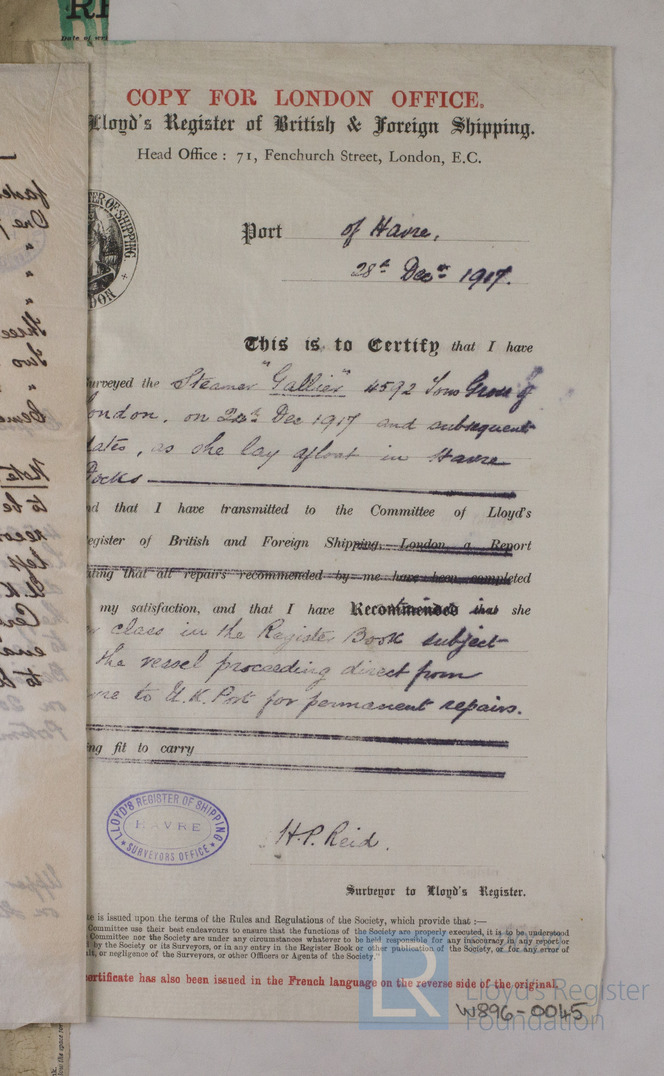 COPY FOR LONDON OFFICE.
Lloyd's Register of British & Foreign Shipping.
Head Office: 71, Fenchurch Street, London, E.C.
Port of Havre,
28th Decr 1917.
This is to Certify that I have
urveyed the Steamer "Gallier" 4592 Tons Gross of
ondon, on Dec 1917 and subsequent
dates, as she lay afloat in Havre
Docks
nd that I have transmitted to the Committee of Lloyd's
egister of British and Foreign Shipping, London a Report
ating that all repairs recommended by me have been completed
my satisfaction, and that I have Recommended that she
class in the Register Book subject
the vessel proceeding direct from
vre to U.K. Port for permanent repairs.
ing fit to carry
LLOYD'S REGISTER OF SHIPPING
HAVRE
SURVEYORS OFFICE
H.P. Reid.
Surveyor to Lloyd's Register.
te is issued upon the terms of the Rules and Regulations of the Society, which provide that :—
Committee use their best endeavours to ensure that the functions of the Society are properly executed, it is to be understood
Committee nor the Society are under any circumstances whatever to be held responsible for any inaccuracy in any report or
d by the Society or its Surveyors, or in any entry in the Register Book or other publication of the Society, or for any error of
lt, or negligence of the Surveyors, or other Officers or Agents of the Society."
ertificate has also been issued in the French language on the reverse side of the original.
LR Lloyd's Register
Foundation
W896-0045